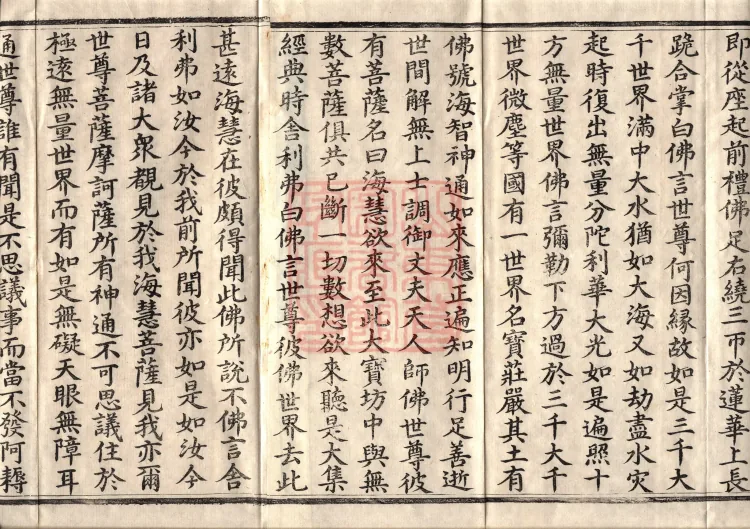 即從座起前禮佛足右繞三帀於蓮華上長
跪合掌白佛言世尊何因縁故如是三千大
千世界滿中大水猶如大海又如劫盡水灾
起時復出無量分陀利華大光如是遍照十
方無量世界佛言彌勒下方過於三千大千
世界微塵等國有一世界名寶莊嚴其土有
佛號海智神通如來應正遍知明行足善逝
世間解無上士調御丈夫天人師佛世尊彼
有菩薩名曰海慧欲來至此大寶坊中與無
數菩薩俱共已斷一切數想欲來聽是大集
經典時舍利弗白佛言世尊彼佛世界去此
甚遠海慧在彼頗得聞此佛所說不佛言舍
利弗如汝今於我前所聞彼亦如是如汝今
日及諸大衆覩見於我海慧菩薩見我亦爾
世尊菩薩摩訶薩所有神通不可思議住於
極遠無量世界而有如是無礙天眼無障耳
通世尊誰有聞是不思議事而當不發阿耨